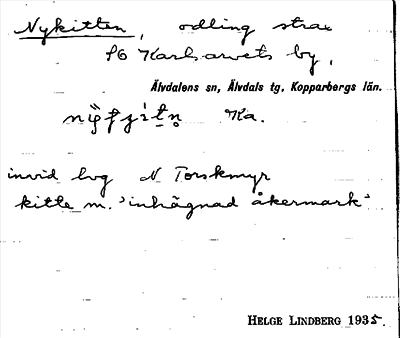 Nykitten, odling strax
SO Karlsarvets by,
Älvdalens sn, Älvdals tg, Kopparbergs län.
Ka.
invid lvg N Torskmyr
kitte m. 'inhägnad åkermark'
HELGE LINDBERG 1935.